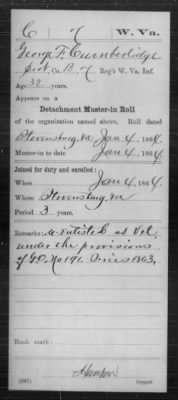 C 7 W. Va.
George F. Cumberlidge
Co. B. 7 Reg't W. Va. Inf.
Age 32 years.
Appears on a
Detachment Muster-in Roll
of the organization named above. Roll dated
Jan 4, 1864.
Muster-in to date Jan 4, 1864
Joined for duty and enrolled:
When Jan 4, 1864.
Where
Period 3 years.
Remarks: as Vet.
under the provisions
of G.O. No. 191. Series 1863,
Book mark:
Copyist.